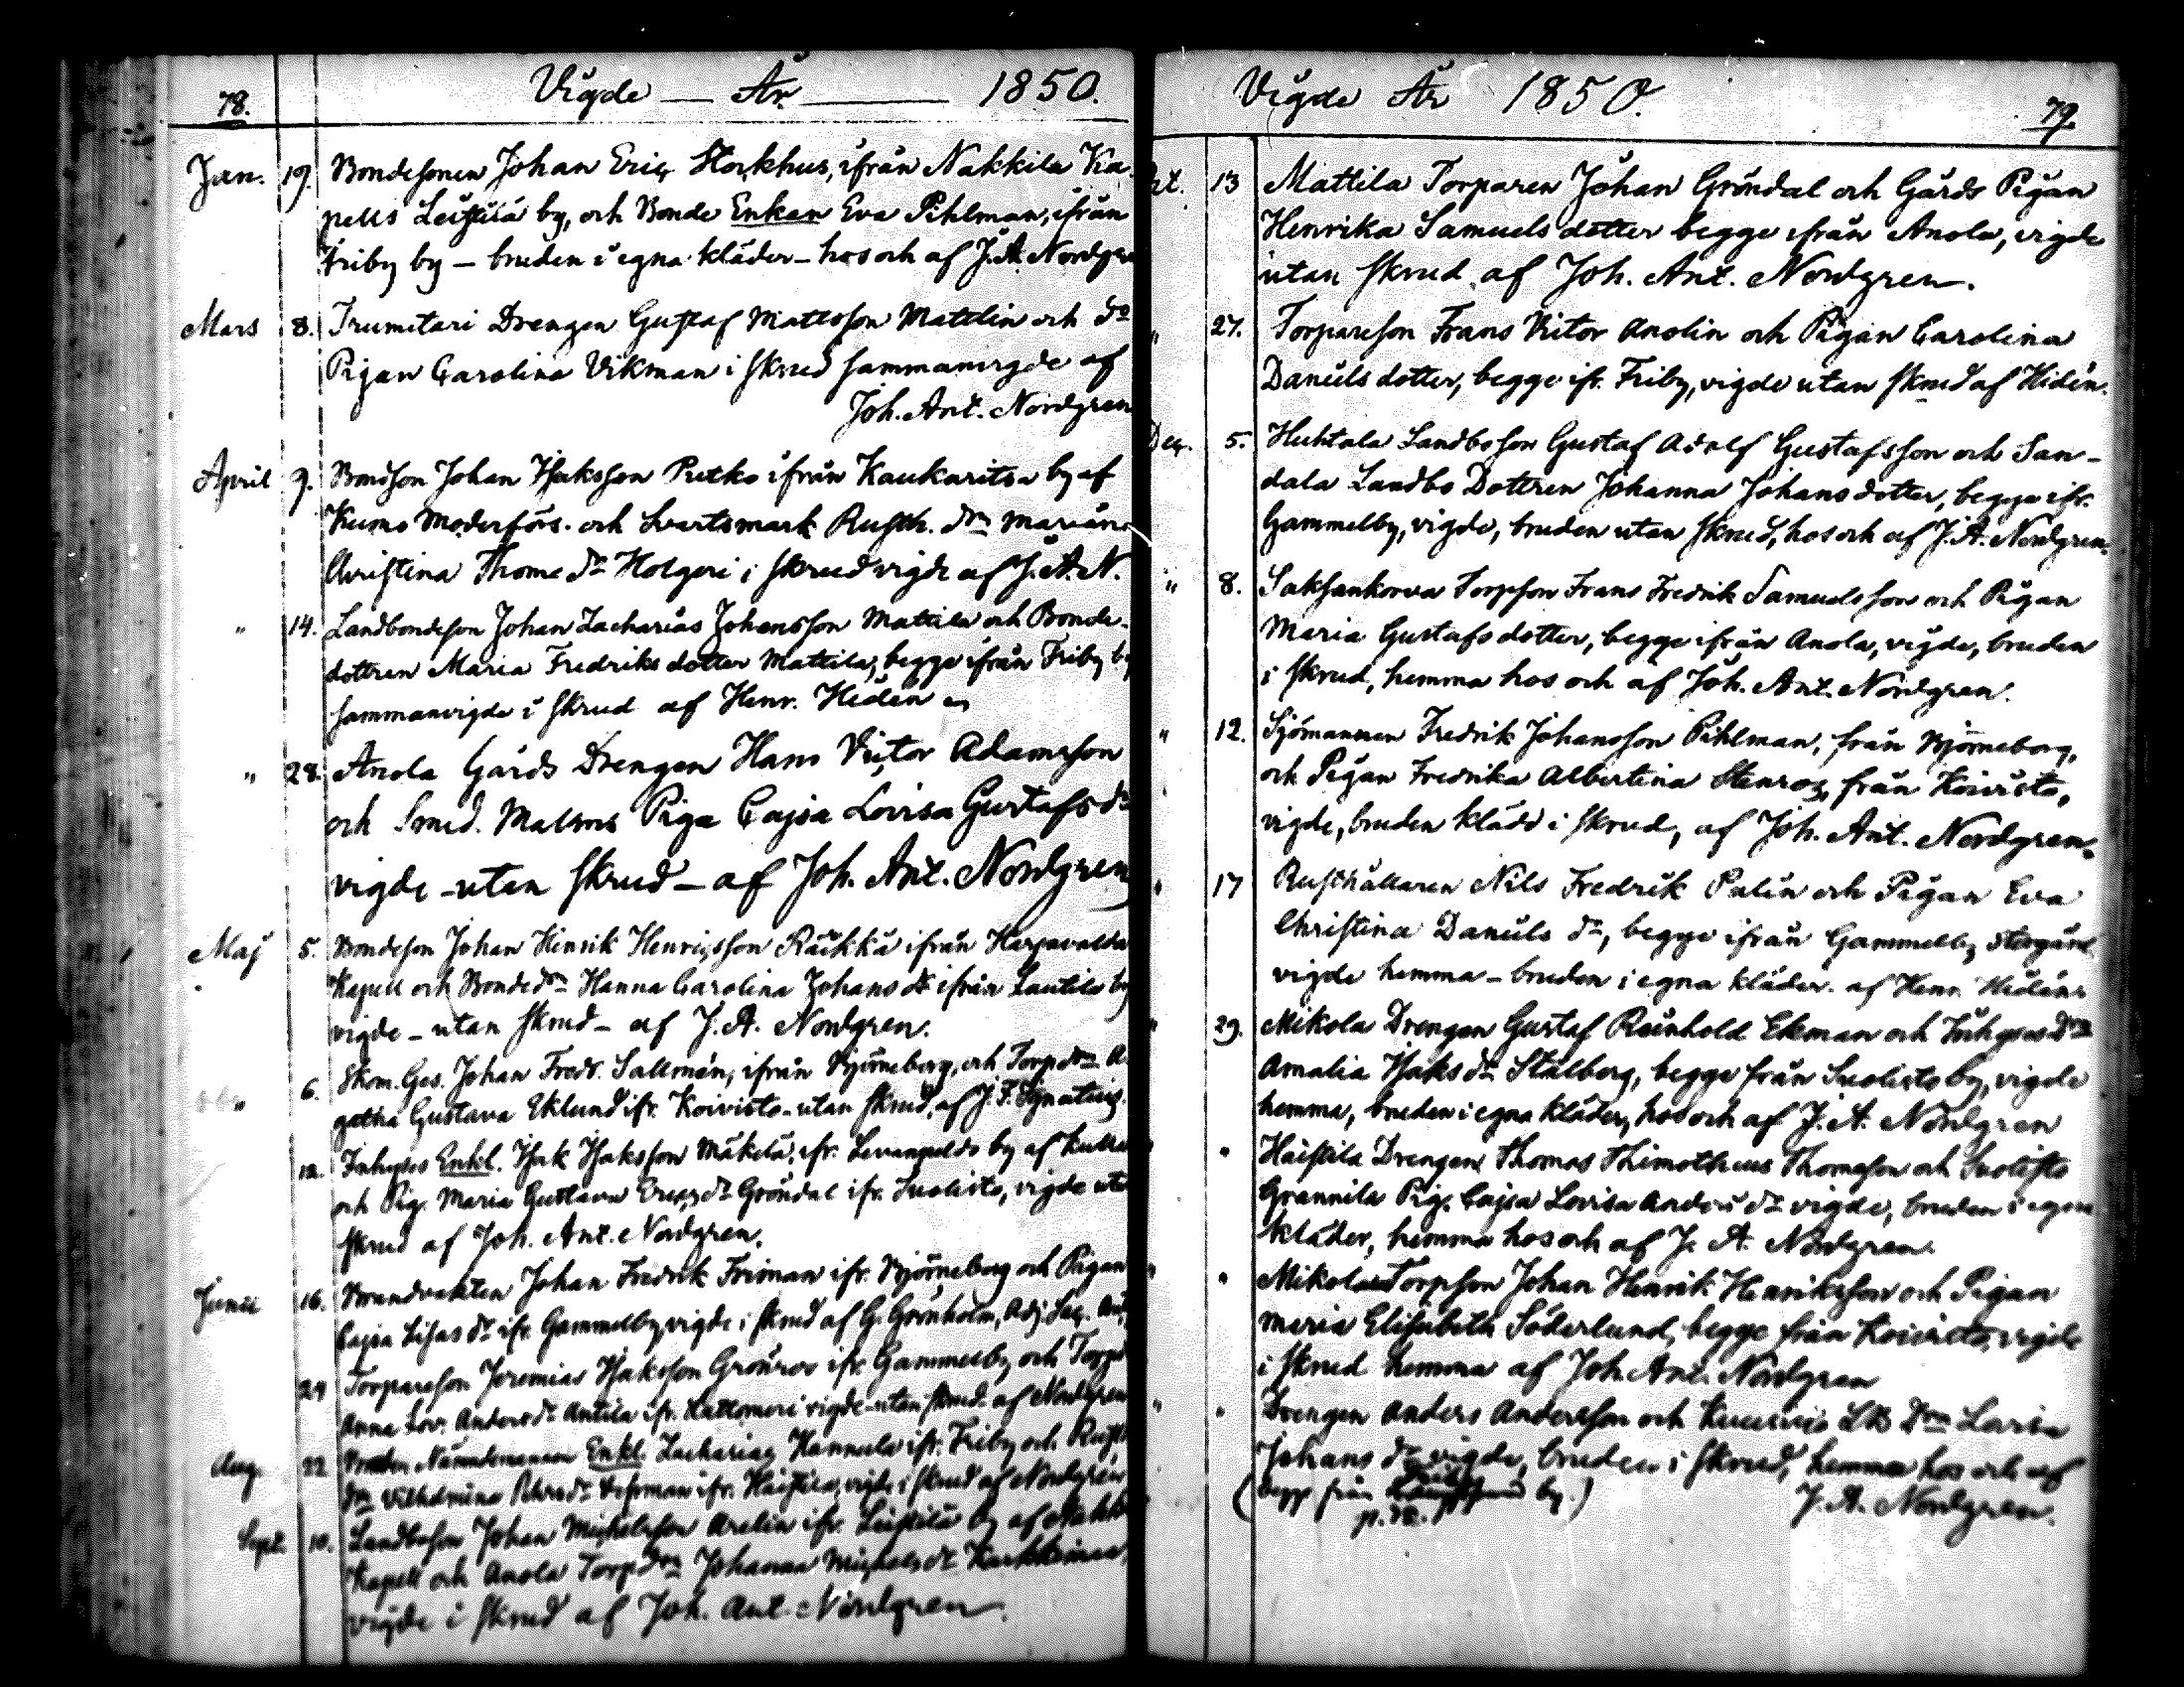 78.
Vigde — År — 1850.
Jan. 19. Bondesonen Johan Eric Storkhus, ifrån Nakkila Ka-
pells Leistilä by, och Bonde Enkan Eva Pihlman, ifrån
Friby by – bruden i egna kläder – hos och af J. A. Nordgre
Mars 8. Trumetari Drengen Gustaf Mattsson Mattlin och do
Pigan Carolina Vikman i skrud sammanvigde af
Joh. Ant. Nordgren
April 9. Bondson Johan Isaksson Prutko ifrån Kaukaritsa by af
Kumo Moderförs. och Svartsmark Rusth. drn Mariana
Christina Thome dr Holgeri i skrud vigde af J. A. N.
" 14. Landbondeson Johan Zacharias Johansson Mattila och Bonde-
dottren Maria Fredriksdotter Mattila, begge ifrån Friby by
sammanvigde i skrud af Henr. Hedén
" 28. Anola Gårds Drengen Hans Victor Adamsson
och Smed. Malms Piga Cajsa Lovisa Gustafs dr
vigde – utan skrud – af Joh. Ant. Nordgren
Maj 5. Bondeson Johan Henrik Henricsson Räikkä ifrån Harjavalda
Kapell och Bonde drn Hanna Carolina Johans dr ifrån Lautila by
vigde – utan skrud – af J. A. Nordgren.
" 6. Skom. Ges. Johan Fredr. Sallmén, ifrån Björneborg, och Torp drn A-
gatha Gustava Eklund ifr. Koivisto – utan skrud, af J. F. Ignatius.
12. Inhyses Enkl. Isak Isaksson Mäkelä, ifr. Levanpeldo by af Kulla
och Pig. Maria Gustava Erics dr Gröndal ifr. Suolisto, vigde uta
skrud af Joh. Ant. Nordgren.
Junii 16. Brandvakten Johan Fredrik Friman ifr. Björneborg och Pigan
Cajsa Lisas dr ifr. Gammelby, vigde i skrud af G. Grönholm, Adj. Sac.
24 Torpareson Jeremias Isaksson Grönroos ifr. Gammelby och Torpd
Anna Lov. Anders dr Antila ifr. Kattomeri vigde – utan skrud af Nordgren
Aug. 22 Nämndemannen Enkl. Zacharias Hannula ifr. Friby och Rusth
drn Vilhelmina Petters dr ifr. Haistila, vigde i skrud af Nordgren
Sept. 10. Landboson Johan Michelsson Arelin ifr. Leistilä by af Nakk
Kapell och Anola Torp drn Johanna Michels dr
vigde i skrud af Joh. Ant. Nordgren
Vigde År 1850.
79.
13 Mattila Torparen Johan Gröndal och Gårds Pigan
Henrika Samuelsdotter begge ifrån Anola, vigde
utan skrud af Joh. Ant. Nordgren.
" 27. Torpareson Frans Victor Anolin och Pigan Carolina
Danielsdotter, begge ifr. Friby, vigde utan skrud af Hedén.
Dec. 5. Huhtala Landboson Gustaf Adolf Gustafsson och San-
dala Landbo Dottren Johanna Johansdotter, begge ifr.
Gammelby, vigde, bruden utan skrud, hos och af J. A. Nordgren.
" 8. Saksankorva Torpson Frans Fredrik Samuelsson och Pigan
Maria Gustafsdotter, begge ifrån Anola, vigde, bruden
i skrud, hemma hos och af Joh. Ant. Nordgren.
" 12. Sjömannen Fredrik Johansson Pihlman, från Björneborg,
och Pigan Fredrika Albertina Stenroos, från Koivisto,
vigde, bruden klädd i skrud, af Joh. Ant. Nordgren.
" 17 Rusthållaren Nils Fredrik Palin och Pigan Eva
Christina Daniels dr, begge ifrån Gammelby Storgård
vigde hemma – bruden i egna kläder. af Henr. Hedén
" 29. Mikola Drengen Gustaf Reinhold Ekman och Inhyses Drn
Amalia Isaks dr Stålberg, begge från Suolisto by, vigde
hemma, bruden i egna kläder, hos och af J. A. Nordgren
" Haistila Drengen Thomas Thimotheus Thomasson och Suolisto
Grannila Pig. Cajsa Lovisa Anders dr vigde, bruden i egna
kläder, hemma hos och af J. A. Nordgren.
" " Mikola Torpson Johan Henrik Henriksson och Pigan
Maria Elisabeth Söderlund, begge från Koivisto, vigde
i skrud hemma af Joh. Ant. Nordgren
" " Drengen Anders Andersson och Lb Drn Lovisa
Johans dr vigde, bruden i skrud, hemma hos och af
(begge från Friby by.)
J. A. Nordgren.